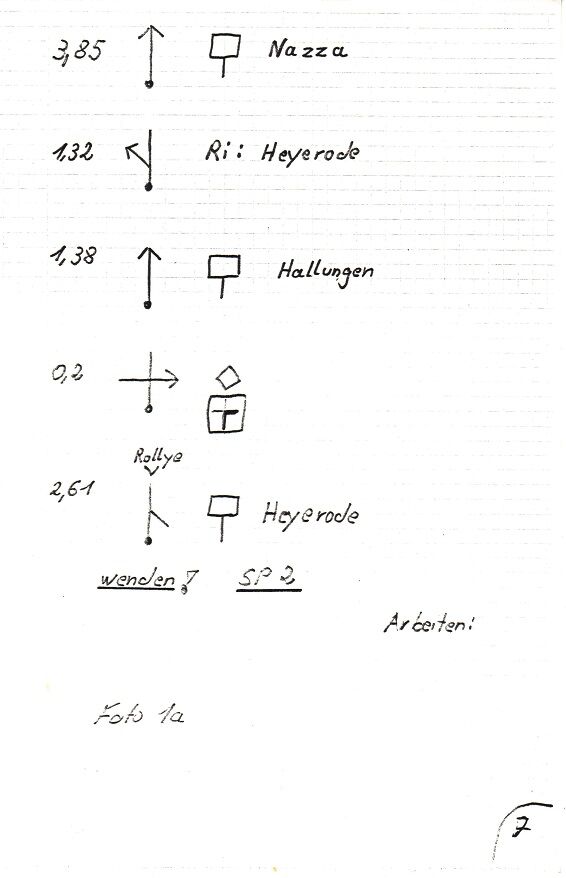 3,85 Nazza
1,32 Ri: Heyerode
1,38 Hallungen
0,2
Rollye
2,61 Heyerode
wenden! SP 2
Arbeiten:
Foto 1a
7